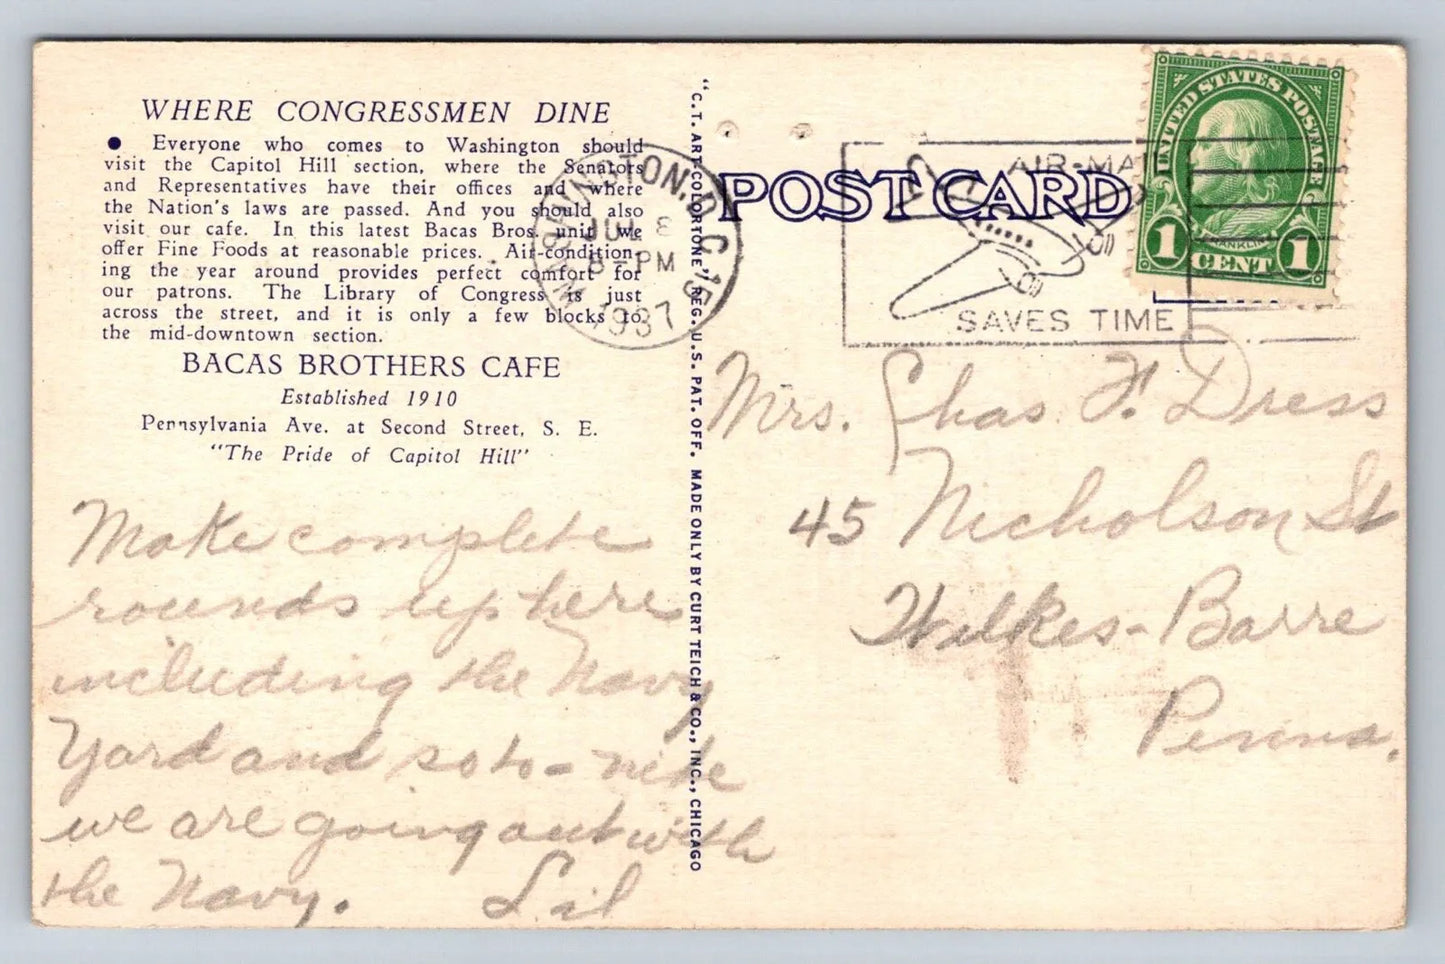 WHERE CONGRESSMEN DINE
● Everyone who comes to Washington should
visit the Capitol Hill section, where the Senators
and Representatives have their offices and where
the Nation's laws are passed. And you should also
visit our cafe. In this latest Bacas Bros. unit we
offer Fine Foods at reasonable prices. Air-condition-
ing the year around provides perfect comfort for
our patrons. The Library of Congress is just
across the street, and it is only a few blocks to
the mid-downtown section.
BACAS BROTHERS CAFE
Established 1910
Pennsylvania Ave. at Second Street, S. E.
"The Pride of Capitol Hill"
Make complete
rounds up here
including the Navy
Yard and so to-nite
we are going out with
the Navy. Lil
"C.T. ART-COLORTONE" REG. U.S. PAT. OFF. MADE ONLY BY CURT TEICH & CO., INC., CHICAGO
POST CARD
WASHINGTON, D.C. 15
JUL 8
8-PM
1937
AIR-MA
SAVES TIME
UNITED STATES POSTAGE
FRANKLIN
1 CENT 1
Mrs. Chas. F. Dress
45 Nicholson St
Wilkes-Barre
Penna.